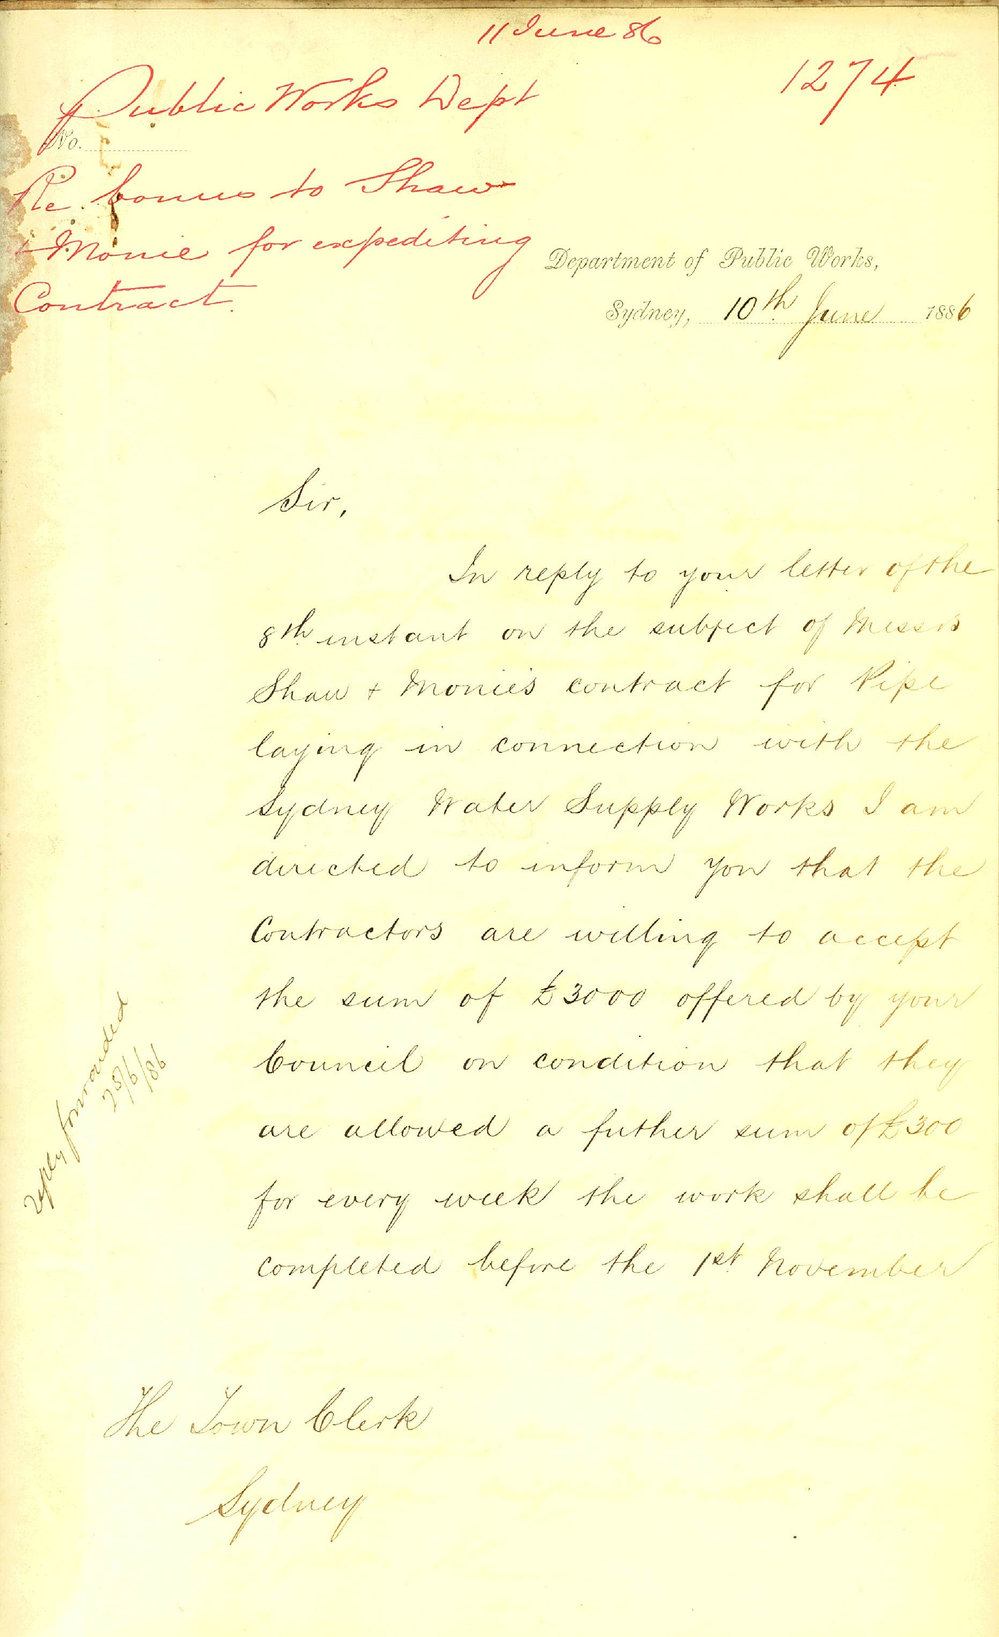 11 June 86
1274
Public Works Dept
No.
Re bonus to Shaw
+ Monie for expediting
Contract.
Department of Public Works,
Sydney, 10th June 1886
Sir,
In reply to your letter of the
8th instant on the subject of Messrs
Shaw + Monie's contract for Pipe
laying in connection with the
Sydney Water Supply Works I am
directed to inform you that the
Contractors are willing to accept
the sum of £3000 offered by your
Council on condition that they
are allowed a futher sum of £300
for every week the work shall be
completed before the 1st November
reply forwarded
25/6/86
The Town Clerk
Sydney